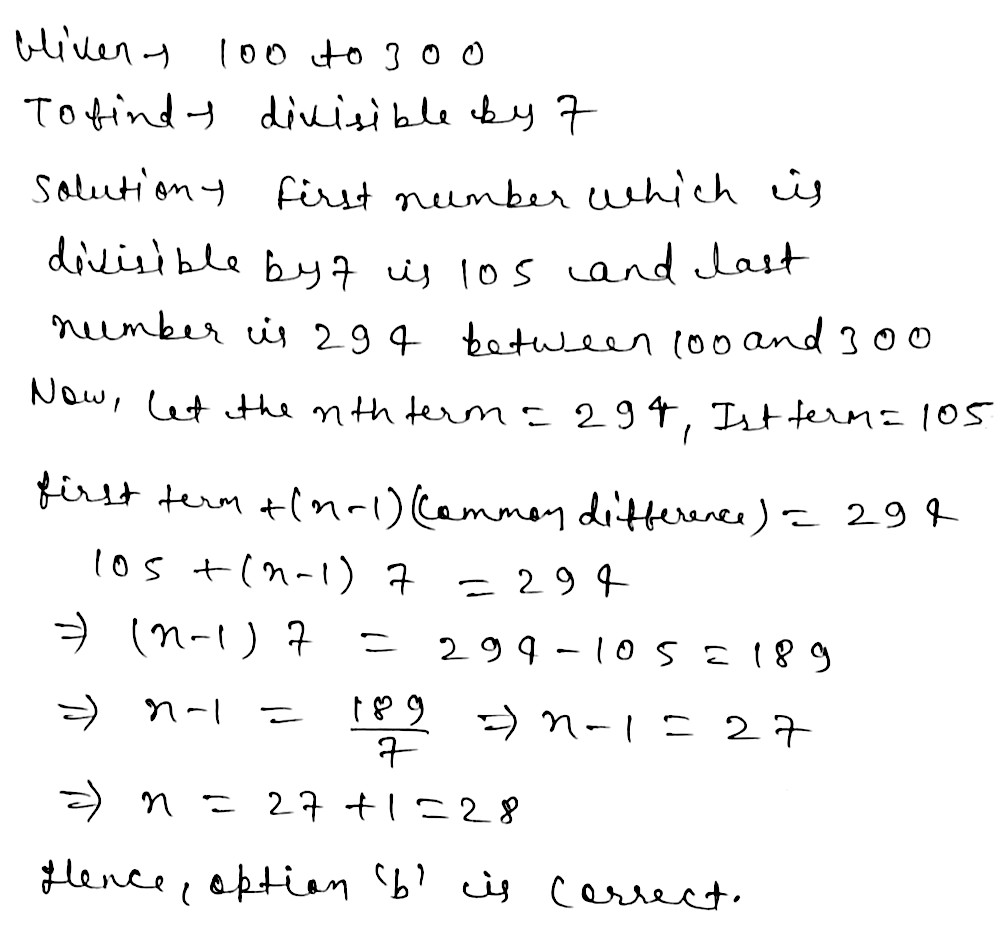 Given → 100 to 300
To find → divisible by 7
Solution → first number which is
divisible by 7 is 105 and last
number is 294 between 100 and 300
Now, let the nth term = 294, Ist term = 105
first term + (n-1) (Common difference) = 294
105 + (n-1) 7 = 294
⇒ (n-1) 7 = 294 - 105 = 189
⇒ n-1 = 189/7 ⇒ n-1 = 27
⇒ n = 27 + 1 = 28
Hence, option 'b' is correct.